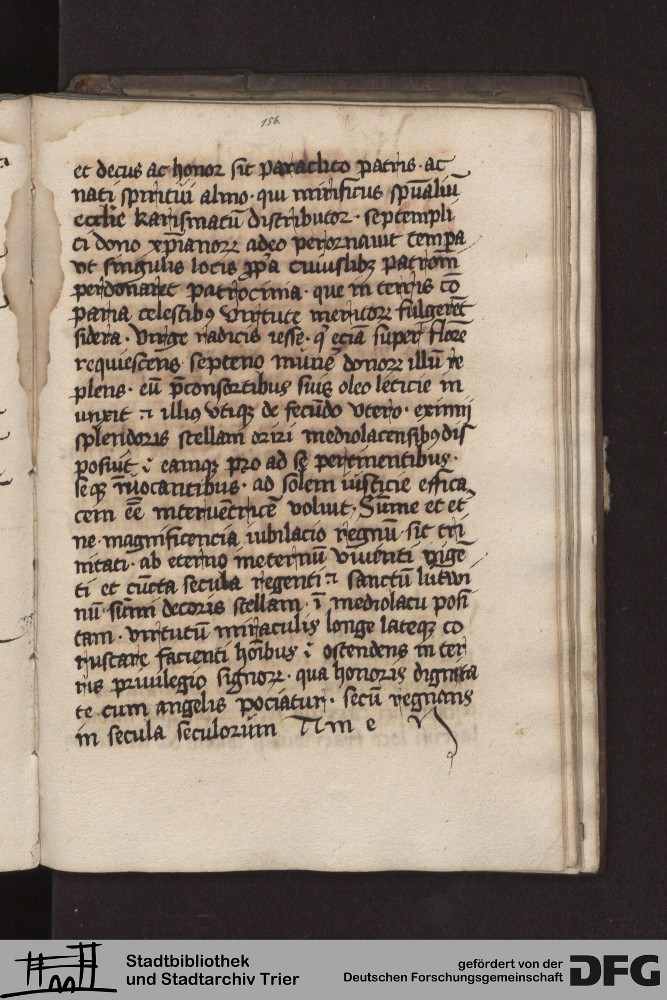 156.
et decus ac honor sit paraclito patris · ac
nati spiritui almo · qui mirificus spūaliū
ecclīe karismatū distributor · septempli
ci dono xp̄ianoꝝ adeo perornauit tempa
vt singulis locis ꝓpa cuiuslibꝫ patroni
perdonaret patrocinia · que in terris cō
paria celestibꝰ virtute meritoꝝ fulgerēt
sidera · virge radicis iesse · eciā super florē
requiescens septeno munē donoꝝ illū re
plens · eū p̄consortibus suis oleo leticie in
unxit ⁊ illiꝰ vtiqꝫ de fecūdo vtero · eximij
splendoris stellam oriri mediolacensibꝰ dis
posuit · eamqꝫ pro ad se pertinentibus ·
seqꝫ īuocantibus · ad solem iusticie effica
cem eē interuētricē voluit · Sūme et et
ne · magnificencia iubilacio regnū · sit tri
nitati · ab eterno ineternū viuenti rigē
ti et cūcta secula regenti ⁊ sanctū lutwi
nū · sūmi decoris stellam · ī mediolacu posi
tam · virtutū miraculis longe lateqꝫ co
ruscare facienti hoībus · ostendens in ter
ris priuilegio signoꝝ · qua honoris dignita
te cum angelis pociatur · secū regnans
in secula seculorum Am e n
Stadtbibliothek
und Stadtarchiv Trier
gefördert von der
Deutschen Forschungsgemeinschaft
DFG